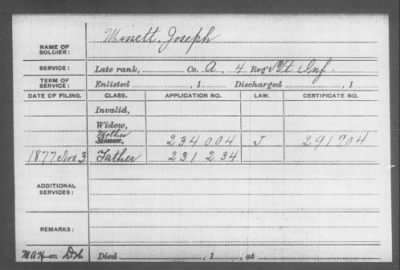 NAME OF SOLDIER: Minett, Joseph
SERVICE: Late rank, Co. A, 4 Reg't Vt Inf.
TERM OF SERVICE: Enlisted , 1 Discharged , 1
DATE OF FILING. CLASS. APPLICATION NO. LAW. CERTIFICATE NO.
Invalid,
Widow,
Mother
Minor, 234004 J 291704
1877 Nov 3 Father 231234
ADDITIONAL SERVICES:
REMARKS:
Died , 1 , at